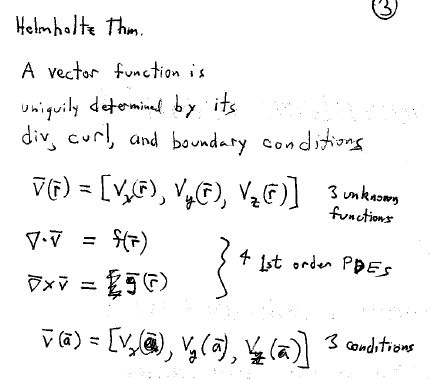 ③
Helmholtz Thm.
A vector function is
uniquily determined by its
div, curl, and boundary conditions
v̄(r̄) = [Vx(r̄), Vy(r̄), Vz(r̄)] 3 unknown functions
∇·v̄ = f(r̄)
∇̄×v̄ = ḡ(r̄)
} 4 1st order PDEs
v̄(ā) = [Vx(ā), Vy(ā), Vz(ā)] 3 conditions